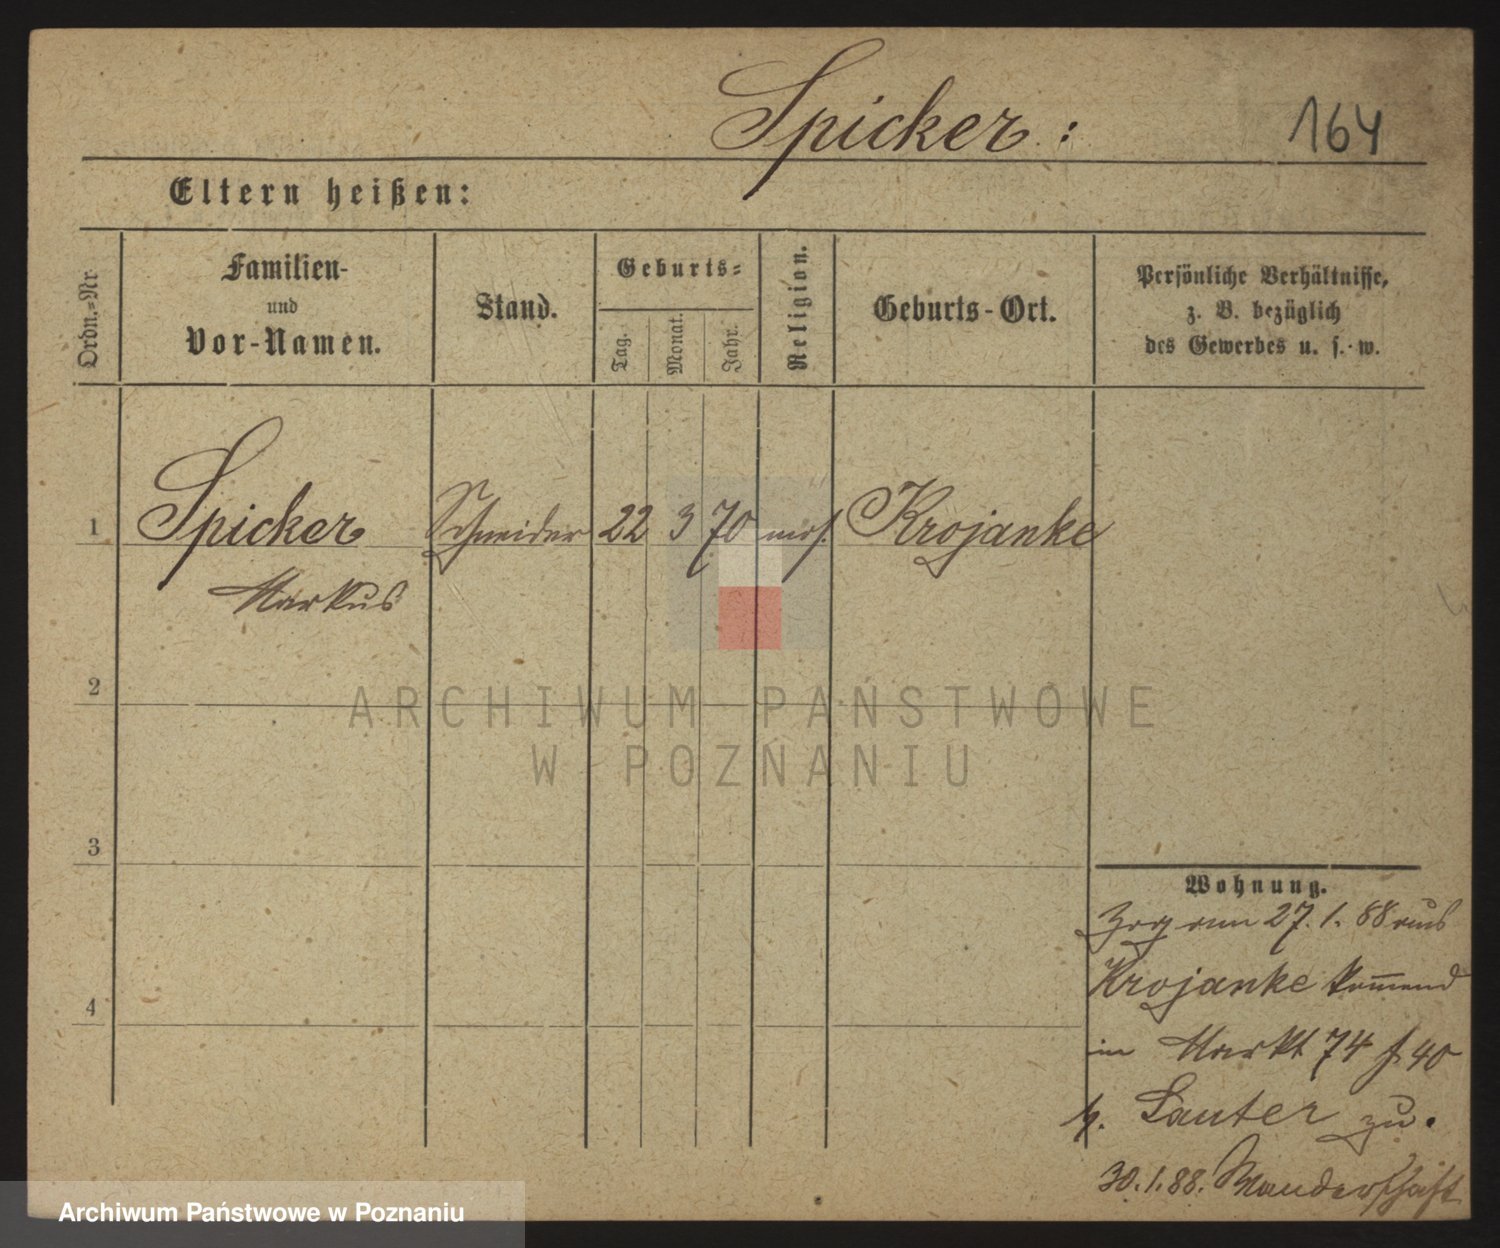 Spicker :
164
Eltern heißen:
Ordn.=Nr
Familien-
und
Vor-Namen.
Stand.
Geburts=
Tag.
Monat.
Jahr.
Religion.
Geburts-Ort.
Persönliche Verhältnisse,
z. B. bezüglich
des Gewerbes u. s. w.
1 Spicker Schneider 22 3 70 mos. Krojanke
Markus
2
3
4
Wohnung.
Zog am 27. 1. 88 aus
Krojanke kom̅end
in Markt 74 40
b. Lauter zu.
30. 1. 88. Wanderschaft
ARCHIWUM PAŃSTWOWE
W POZNANIU
Archiwum Państwowe w Poznaniu